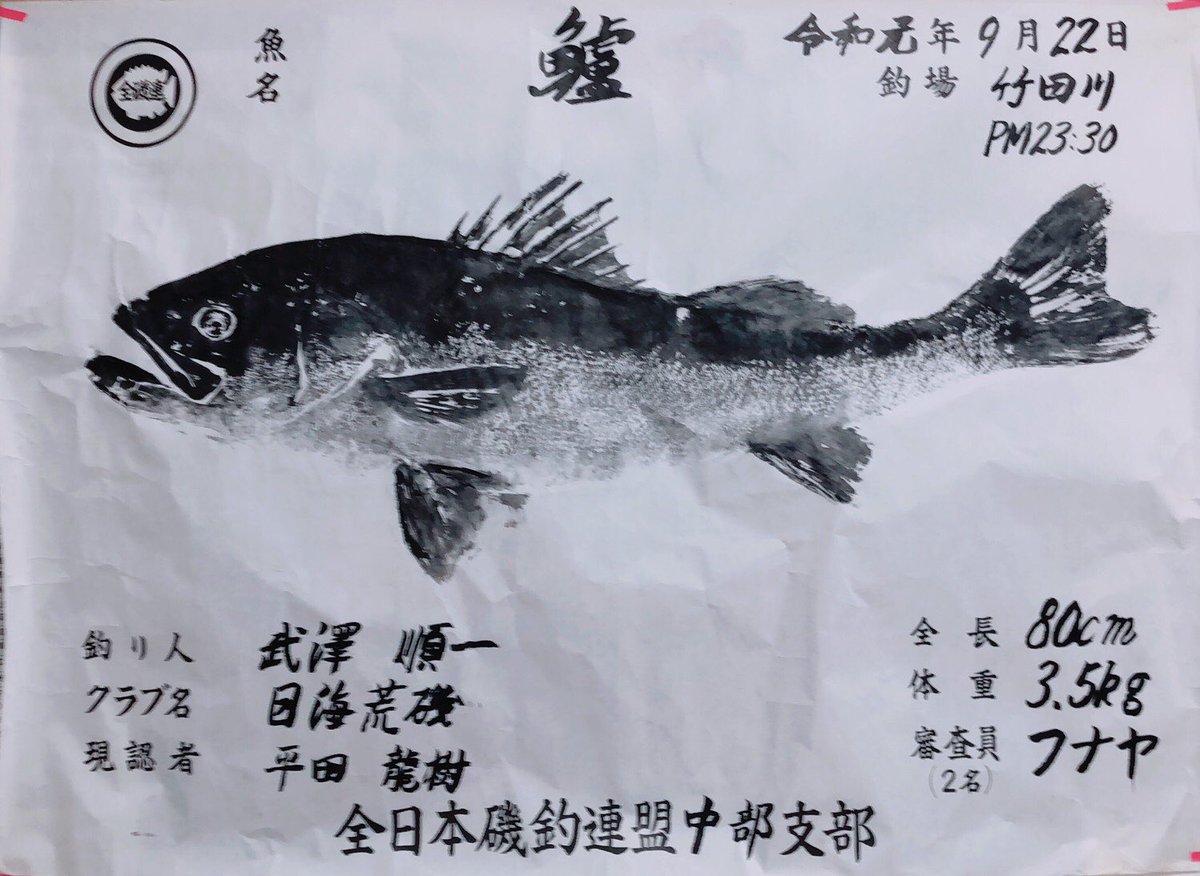 全磯連
魚名
鱸
令和元年 9月22日
釣場 竹田川
PM23:30
釣り人 武澤 順一
クラブ名 日海荒磯
現認者 平田 龍樹
全長 80cm
体重 3.5kg
審査員 フナヤ
(2名)
全日本磯釣連盟中部支部